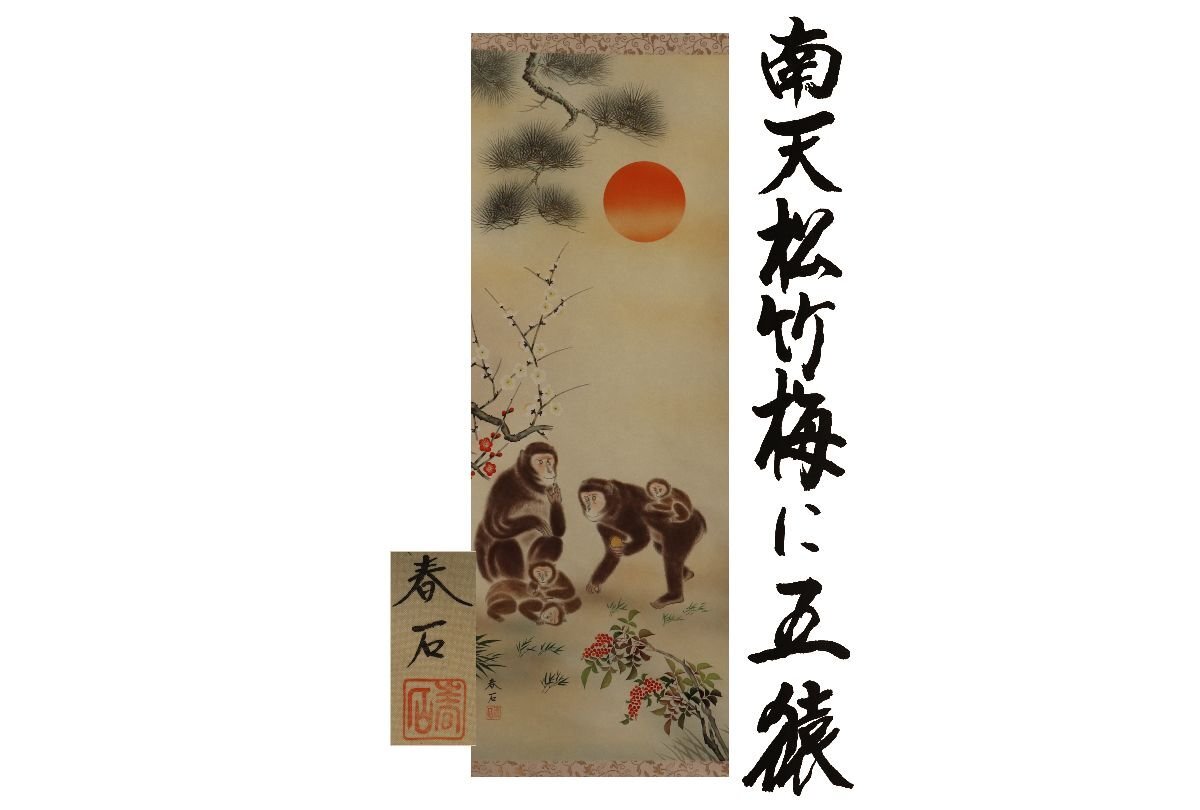 南天松竹梅に五猿
春石
春石